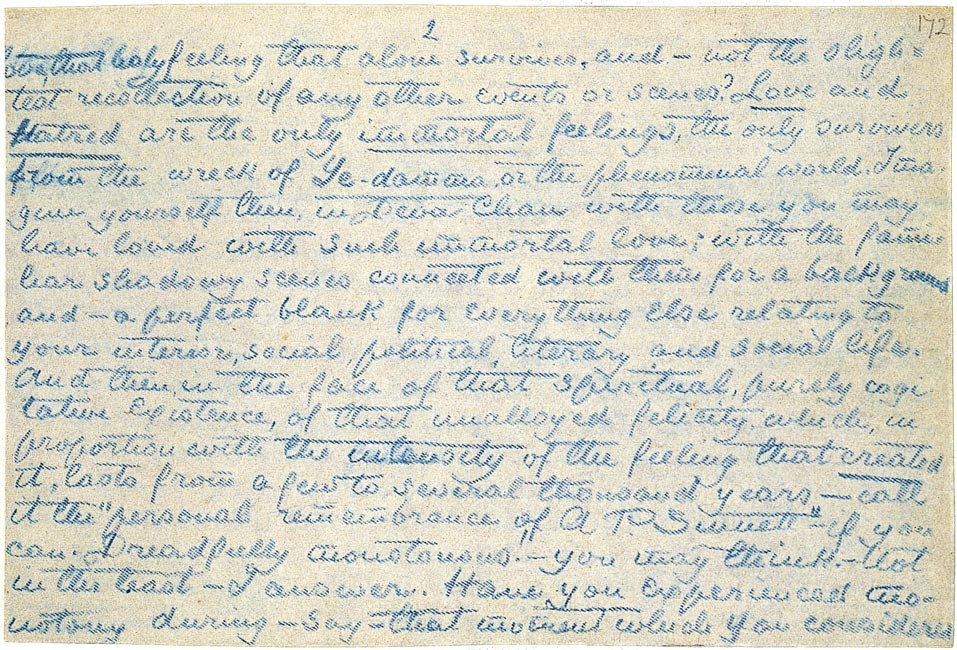 2 172
but that holy feeling that alone survives, and – not the sligh=
test recollection of any other events or scenes? Love and
Hatred are the only immortal feelings, the only survivors
from the wreck of Ye-damma, or the phenomenal world. Ima-
gine yourself then, in Deva Chan with those you may
have loved with such immortal love; with the fami
liar shadowy scenes connected with them for a background
and – a perfect blank for everything else relating to
your interior, social, political, literary and social life.
And then, in the face of that spiritual, purely cogi
tative existence, of that unalloyed felicity which, in
proportion with the intensity of the feeling that created
it, lasts from a few to several thousand years – call
it the "personal remembrance of A P Sinnett" – if you
can. Dreadfully monotonous! – you may think. – Not
in the least – I answer. Have you experienced mo-
notony during – say – that moment which you considered